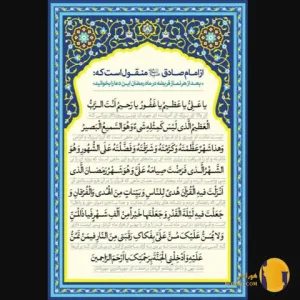 از امام صادق علیه السلام منقول است که:
«بعد از هر نماز فریضه در ماه رمضان این دعا را بخوانید»
یا عَلِیُّ یا عَظیمُ یا غَفُورُ یا رَحیمُ أَنْتَ الرَّبُّ
الْعَظیمُ الَّذی لَیْسَ کَمِثْلِهِ شَیْءٌ وَهُوَ السَّمیعُ الْبَصیرُ
وَهذا شَهْرٌ عَظَّمْتَهُ وَکَرَّمْتَهُ وَشَرَّفْتَهُ وَفَضَّلْتَهُ عَلَی الشُّهُورِ وَهُوَ
الشَّهْرُ الَّذی فَرَضْتَ صِیامَهُ عَلَیَّ وَهُوَ شَهْرُ رَمَضانَ الَّذی
أَنْزَلْتَ فیهِ الْقُرْآنَ هُدیً لِلنّاسِ وَبَیِّناتٍ مِنَ الْهُدی وَالْفُرْقانِ وَ
جَعَلْتَ فیهِ لَیْلَةَ الْقَدْرِ وَجَعَلْتَها خَیْراً مِنْ أَلْفِ شَهْرٍ فَیا ذَا الْمَنِّ
وَلا یُمَنُّ عَلَیْکَ مُنَّ عَلَیَّ بِفَکاکِ رَقَبَتی مِنَ النّارِ فیمَنْ تَمُنُّ
عَلَیْهِ وَأَدْخِلْنِی الْجَنَّةَ بِرَحْمَتِکَ یا أَرْحَمَ الرّاحِمینَ